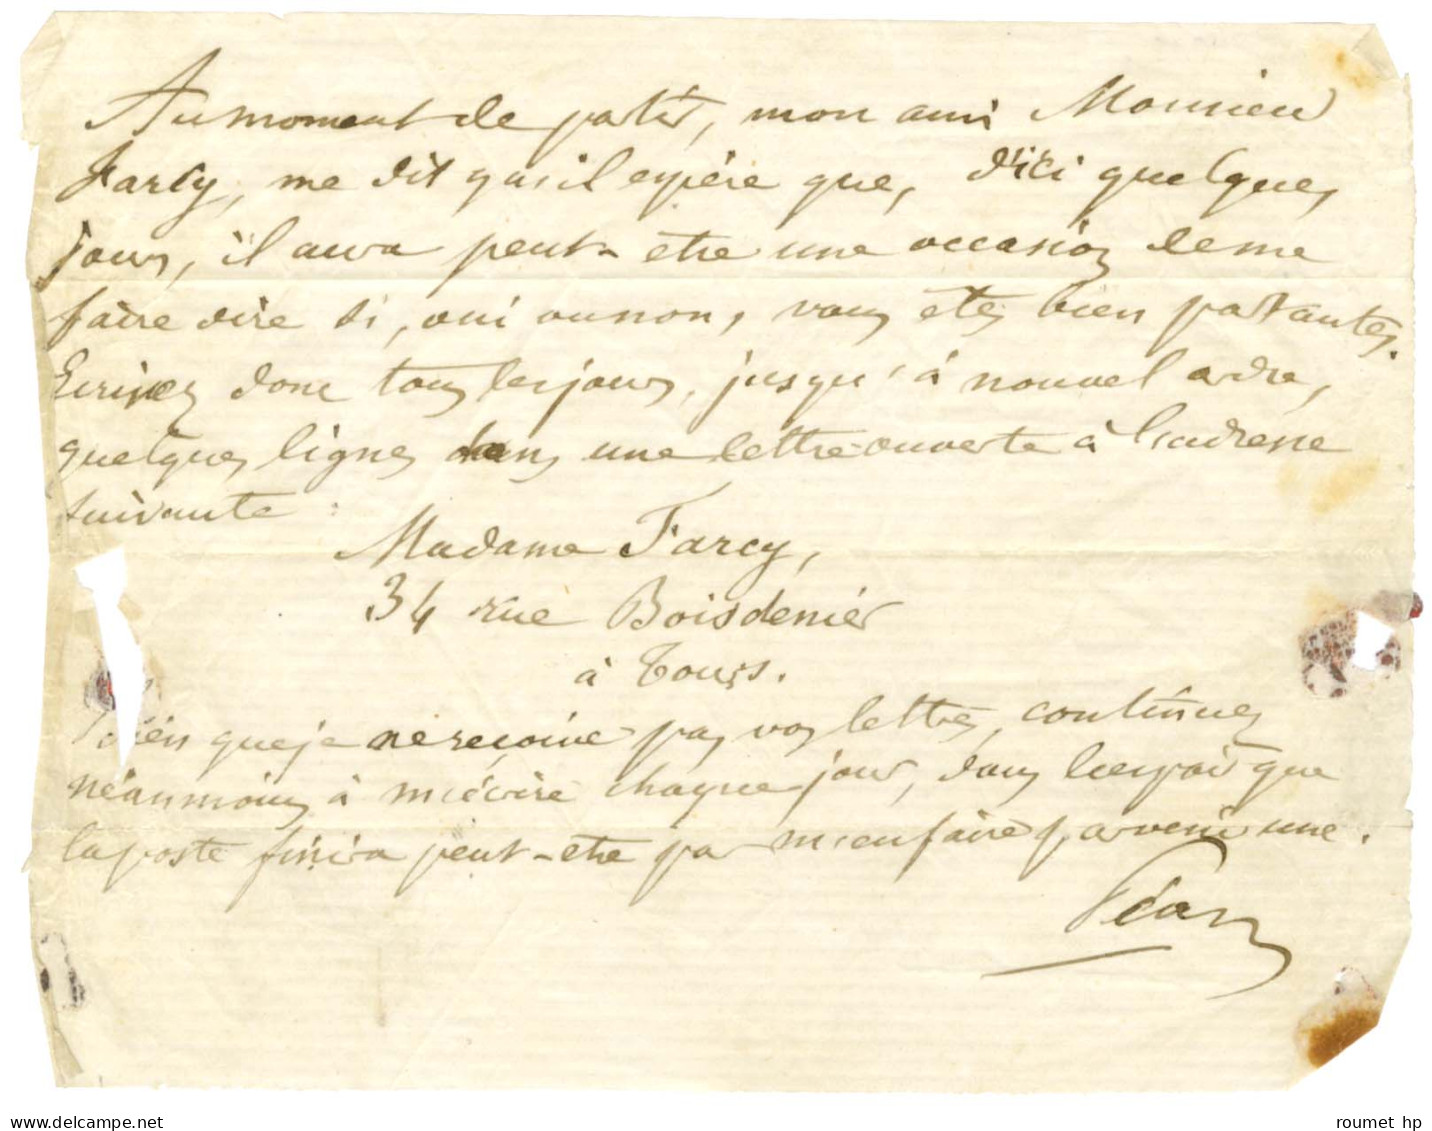 Au moment de partir, mon ami Monsieur
Farcy, me dit qu'il espère que, d'ici quelques
jours, il aura peut-etre une occasion de me
faire dire si, oui ou non, vous etes bien portantes.
Ecrivez donc tous les jours, jusqu'à nouvel ordre,
quelques lignes dans une lettre ouverte à l'adresse
suivante :
Madame Farcy,
34 rue Boisdenier
à Tours.
Bien que je ne reçoive pas vos lettres, continuez
néanmoins à m'écrire chaque jour, dans l'espoir que
la poste finira peut-etre par m'en faire parvenir une.
Péan
roumet hp
delcampe.net